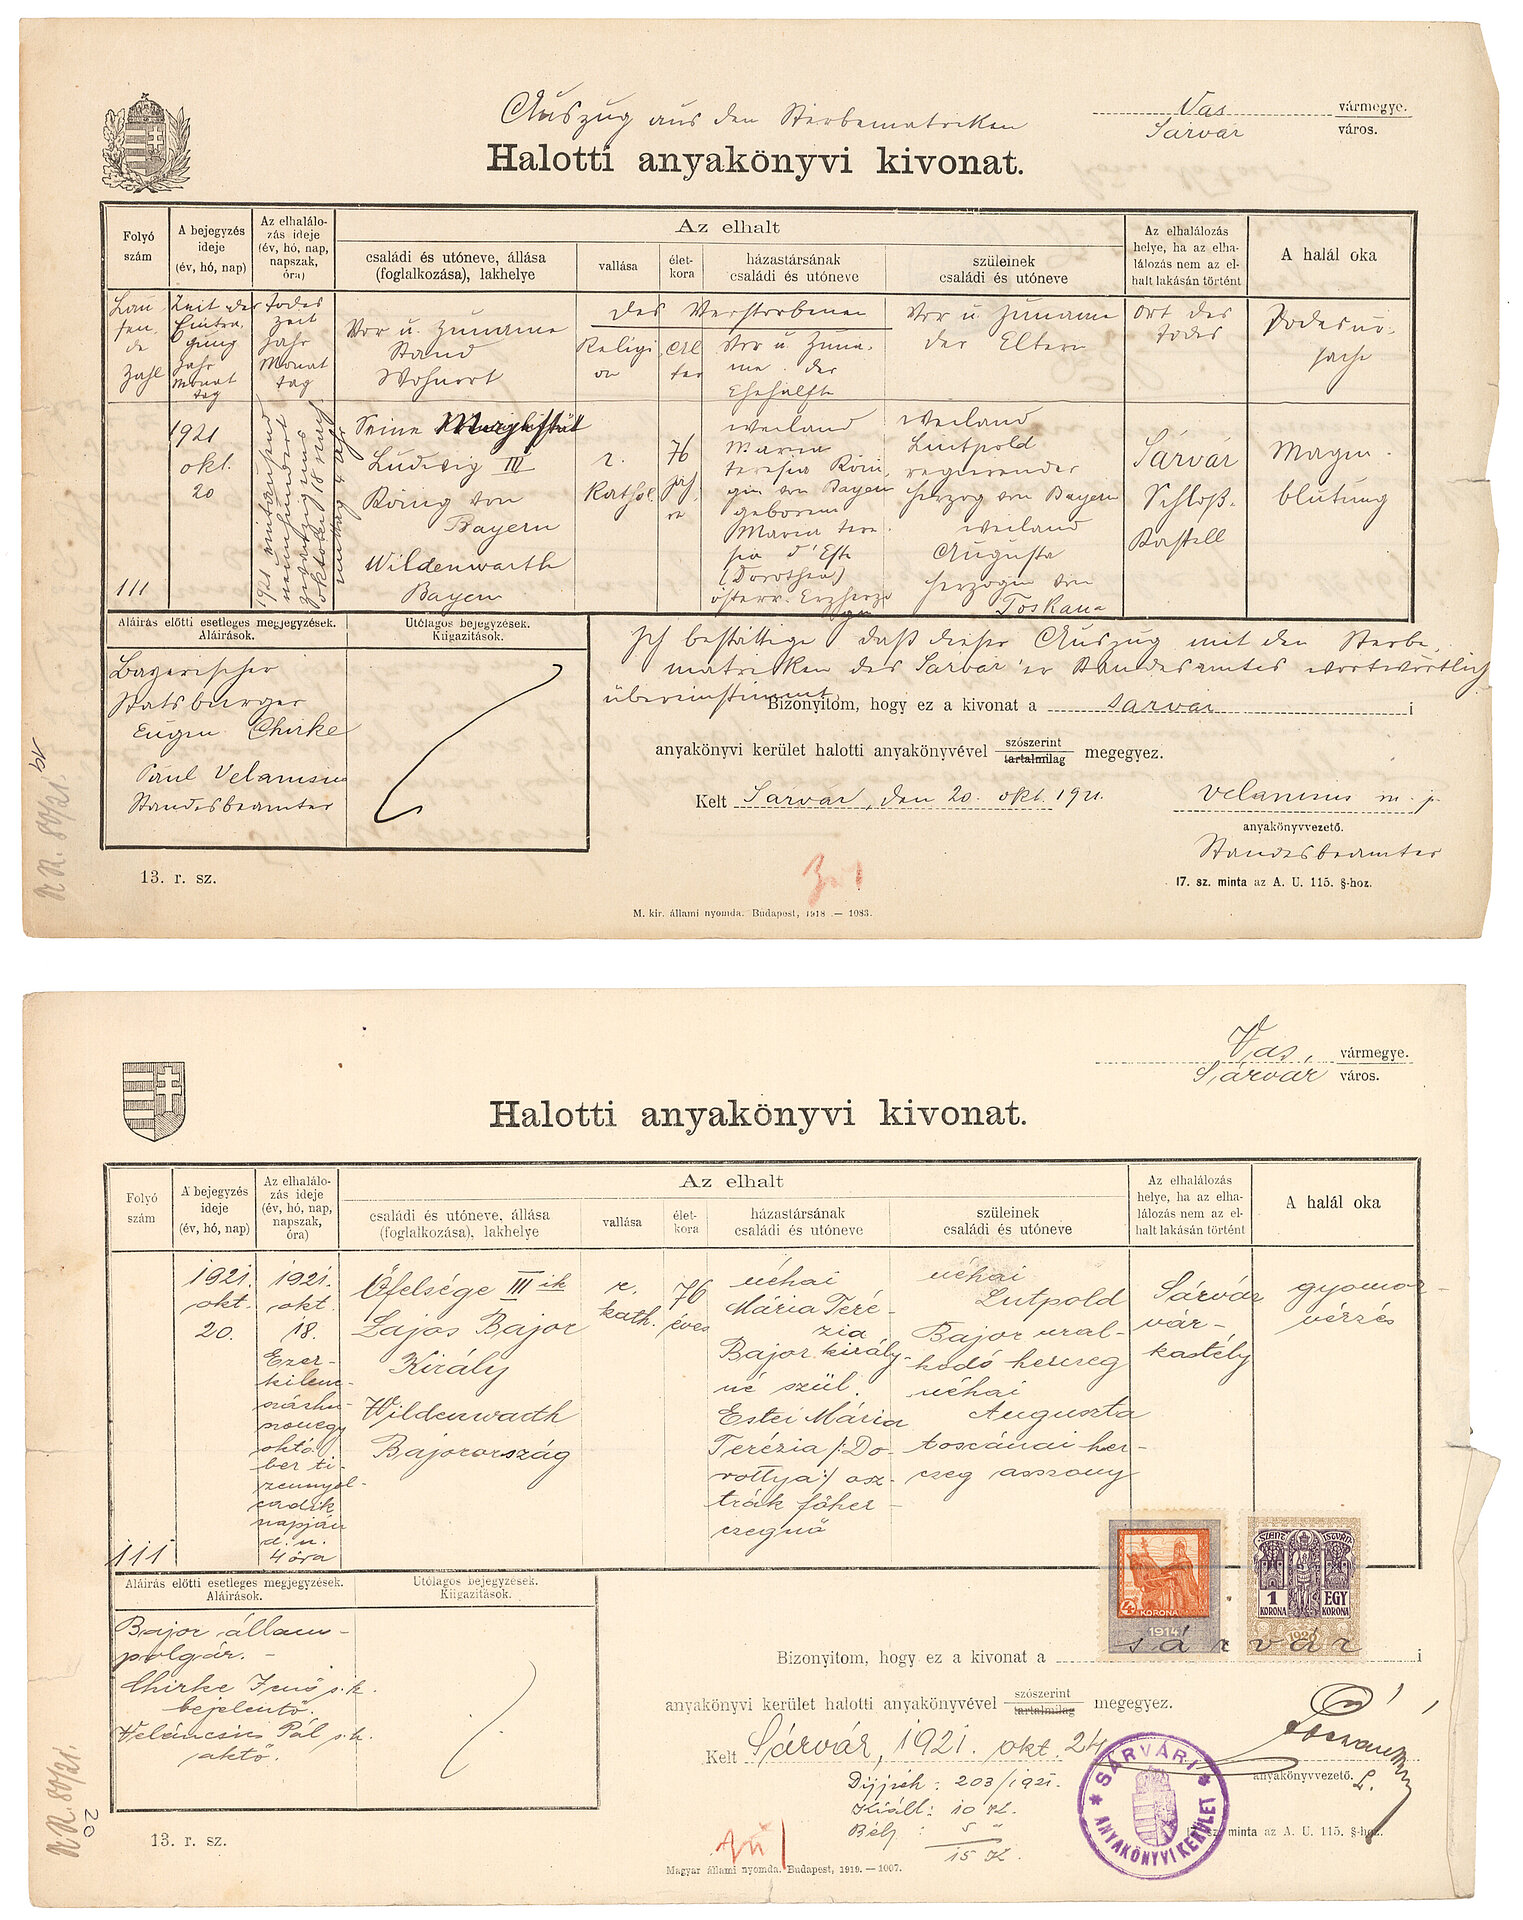 Auszug aus den Sterbematriken
Vas vármegye.
Sárvár város.
Halotti anyakönyvi kivonat.
Folyó szám
A bejegyzés ideje (év, hó, nap)
Az elhalálozás ideje (év, hó, nap, napszak, óra)
Az elhalt
családi és utóneve, állása (foglalkozása), lakhelye
vallása
életkora
házastársának családi és utóneve
szüleinek családi és utóneve
Az elhalálozás helye, ha az elhalálozás nem az elhalt lakásán történt
A halál oka
Laufende Zahl
Zeit der Eintragung Jahr Monat Tag
Todeszeit Jahr Monat Tag
Vor u. Zuname
Stand
Wohnort
des Verstorbenen
Religion
Alter
Vor u. Zuname der Ehehälfte
Vor u. Zuname der Eltern
Ort des Todes
Todesursache
111
1921
okt.
20
1921 eintausend neunhundert zwanzig uns oktober 18 nachmittag 4 Uhr
Seine
Ludwig III
König von
Bayern
Wildenwarth
Bayern
r.
Kathol.
76
Jahre
weiland
Maria
Teresia Königin von Bayern
geborene
Maria Teresia d'Este
(Dorothea)
österr. Erzherzogin
weiland
Luitpold
regierender
Herzog von Bayern
weiland
Augusta
Herzogin von
Toskana
Sárvár
Schloß-
Kastell
Magen-
blutung
Aláírás előtti esetleges megjegyzések.
Aláírások.
Utólagos bejegyzések.
Kiigazítások.
Bayerischer
Statsbürger
Eugen Chirke
Paul Velamsin
Standesbeamter
Ich bestättige daß dieser Auszug mit den Sterbe-
matriken des Sarvár'er Standesamtes wortwörtlich
übereinstimmt.
Bizonyitom, hogy ez a kivonat a Sarvár i
anyakönyvi kerület halotti anyakönyvével szószerint tartalmilag megegyez.
Kelt Sarvar, den 20. okt. 1921.
Velamsin m. p.
anyakönyvvezető.
Standesbeamter
13. r. sz.
17. sz. minta az A. U. 115. §-hoz.
M. kir. állami nyomda. Budapest, 1918 — 1083.
N.R. 80/21. 19
Vas, vármegye.
Sárvár város.
Halotti anyakönyvi kivonat.
Folyó szám
A bejegyzés ideje (év, hó, nap)
Az elhalálozás ideje (év, hó, nap, napszak, óra)
Az elhalt
családi és utóneve, állása (foglalkozása), lakhelye
vallása
életkora
házastársának családi és utóneve
szüleinek családi és utóneve
Az elhalálozás helye, ha az elhalálozás nem az elhalt lakásán történt
A halál oka
111
1921.
okt.
20.
1921.
okt.
18.
Ezer-
kilenc-
százhu-
szonegy
októ-
ber ti-
zennyol-
cadik
napján
d. u.
4 óra
Őfelsége III ik
Lajos Bajor
Király
Wildenwarth
Bajorország
r.
kath.
76
éves
néhai
Mária Teré-
zia
Bajor király-
né szül.
Estei Mária
Terézia /:Do-
rottya:/ osz-
trák főher-
cegnő
néhai
Lutpold
Bajor ural-
kodó herceg
néhai
Auguszta
toscánai her-
ceg asszony
Sárvár
vár-
kastély
gyomor-
vérzés
Aláírás előtti esetleges megjegyzések.
Aláírások.
Utólagos bejegyzések.
Kiigazítások.
Bajor állam-
polgár. -
Chirke Jenő s. k.
bejelentő.
Veláncsics Pál s. k.
aktő.
4
KORONA
1914
SZENT ISTVÁN
1 KORONA
EGY KORONA
1920
Bizonyitom, hogy ez a kivonat a sárvár i
anyakönyvi kerület halotti anyakönyvével szószerint tartalmilag megegyez.
Kelt Sárvár, 1921. okt. 24
anyakönyvvezető.
Díjjegyz: 203/1921.
Kiáll: 10 K.
Bély: 5 "
15 K.
* SÁRVÁRI * ANYAKÖNYVI KERÜLET
13. r. sz.
sz. minta az A. U. 115. §-hoz.
Magyar állami nyomda. Budapest, 1919. — 1007.
N.R. 80/21.
20